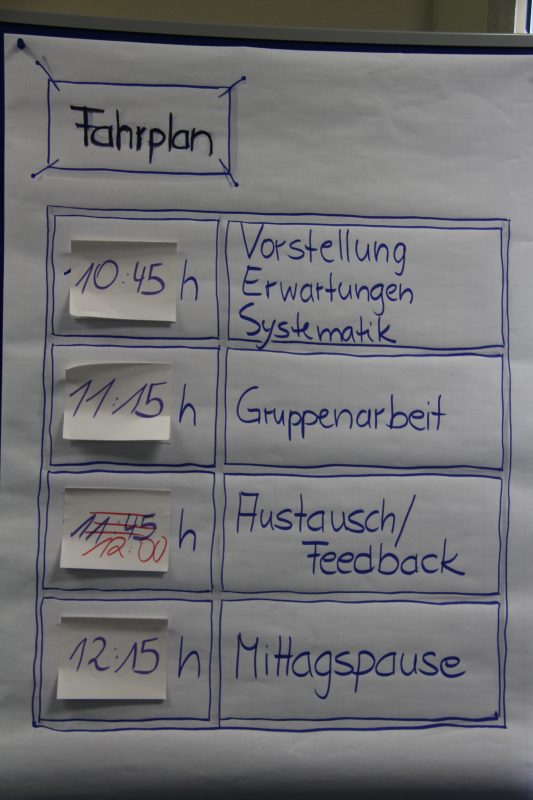 Fahrplan
10:45 h
Vorstellung
Erwartungen
Systematik
11:15 h
Gruppenarbeit
11:45
12:00 h
Austausch/
Feedback
12:15 h
Mittagspause